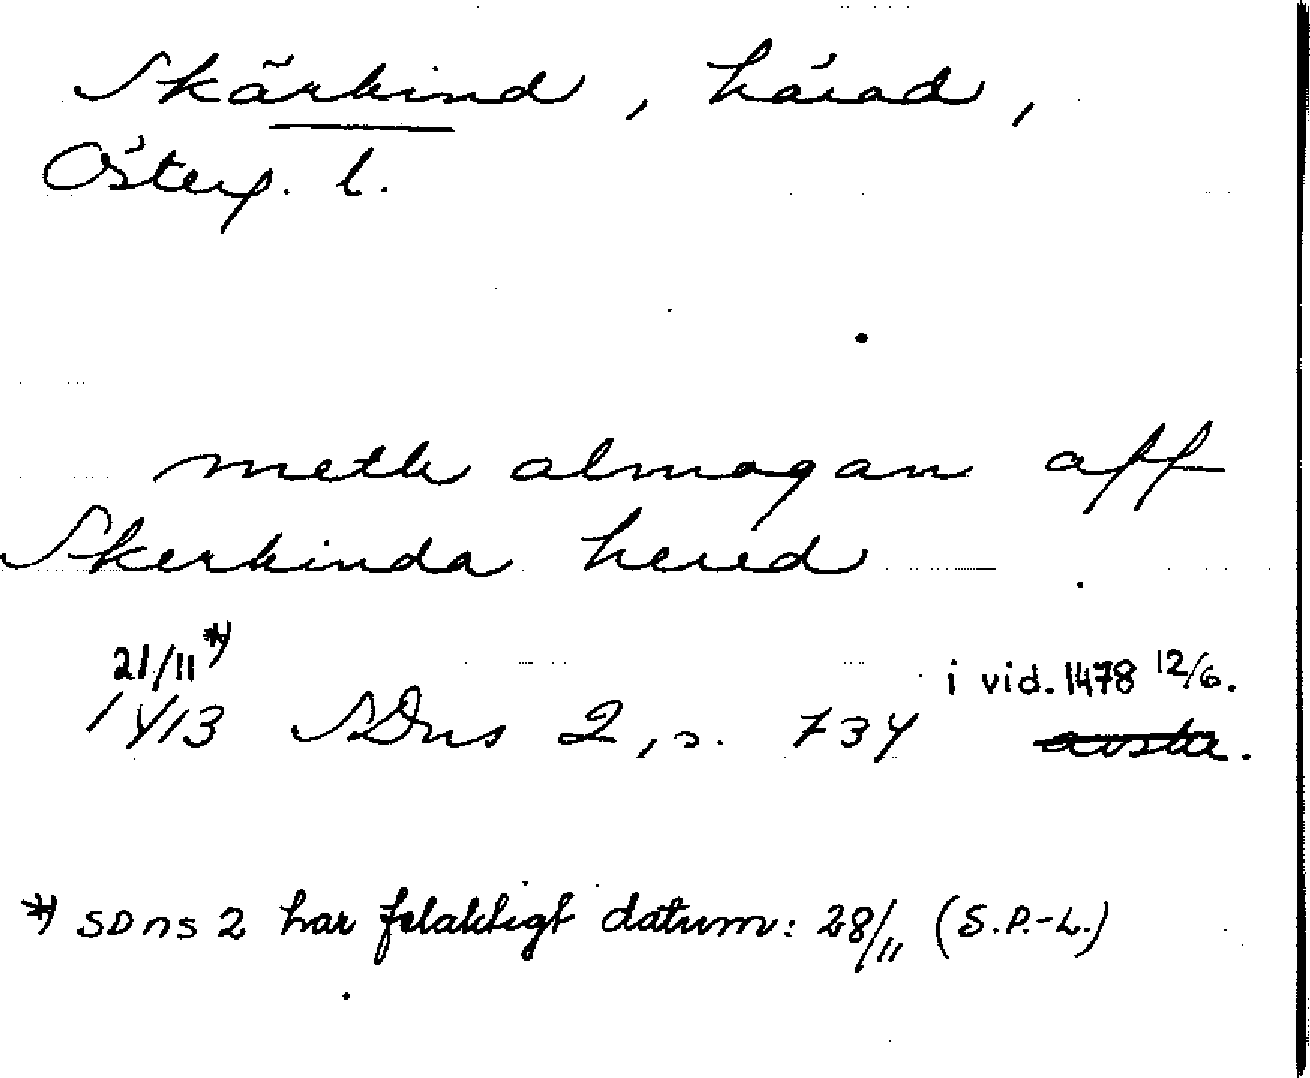 Skärkind, härad,
Österg. l.
meth almogan aff
Skerkinda hered
21/11 *)
1413 SDns 2, s. 734 i vid. 1478 12/6.
*) SDns 2 har felaktigt datum: 28/11 (S.P.-L.)